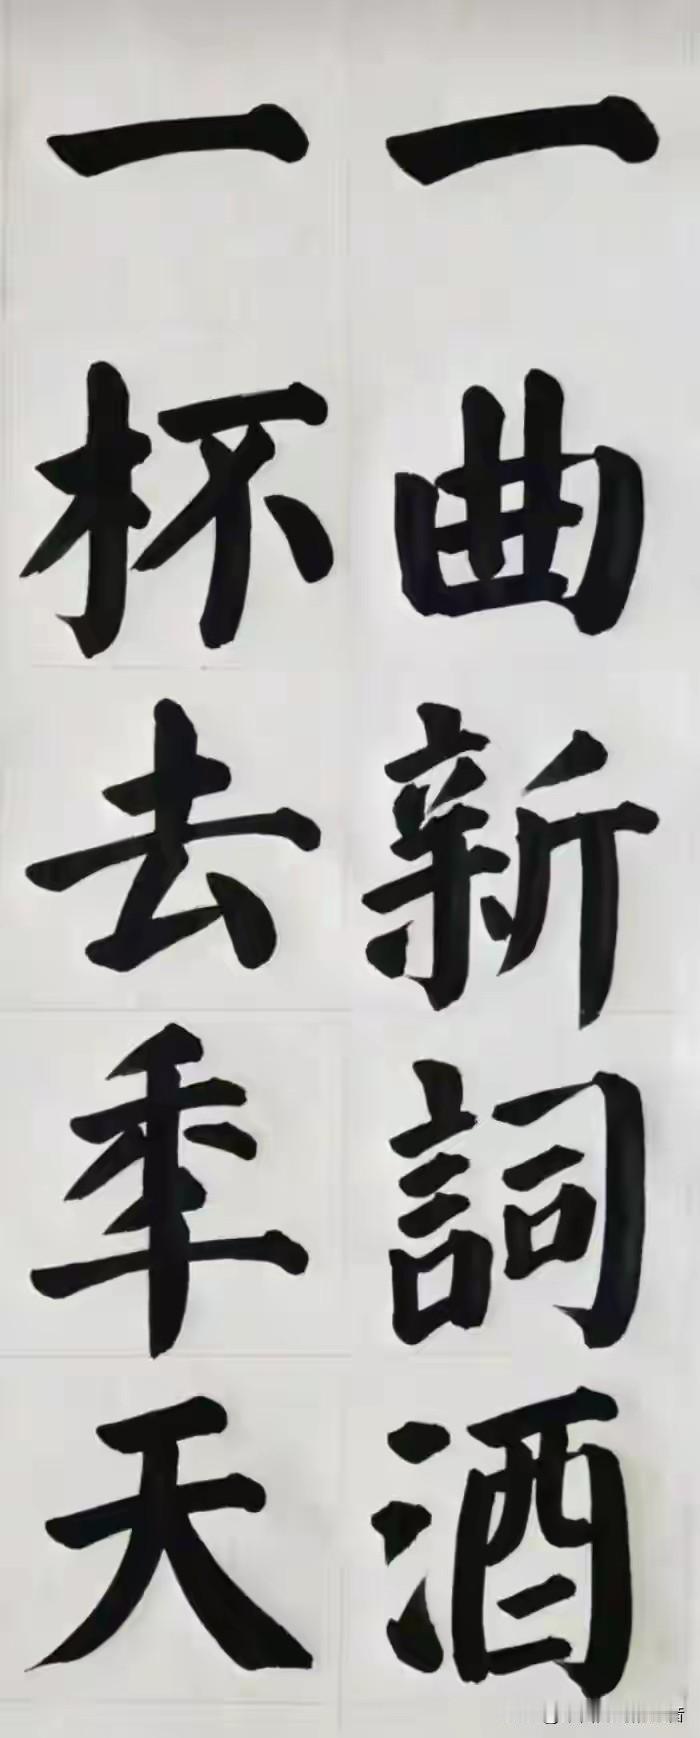 一曲新詞酒
一杯去年天